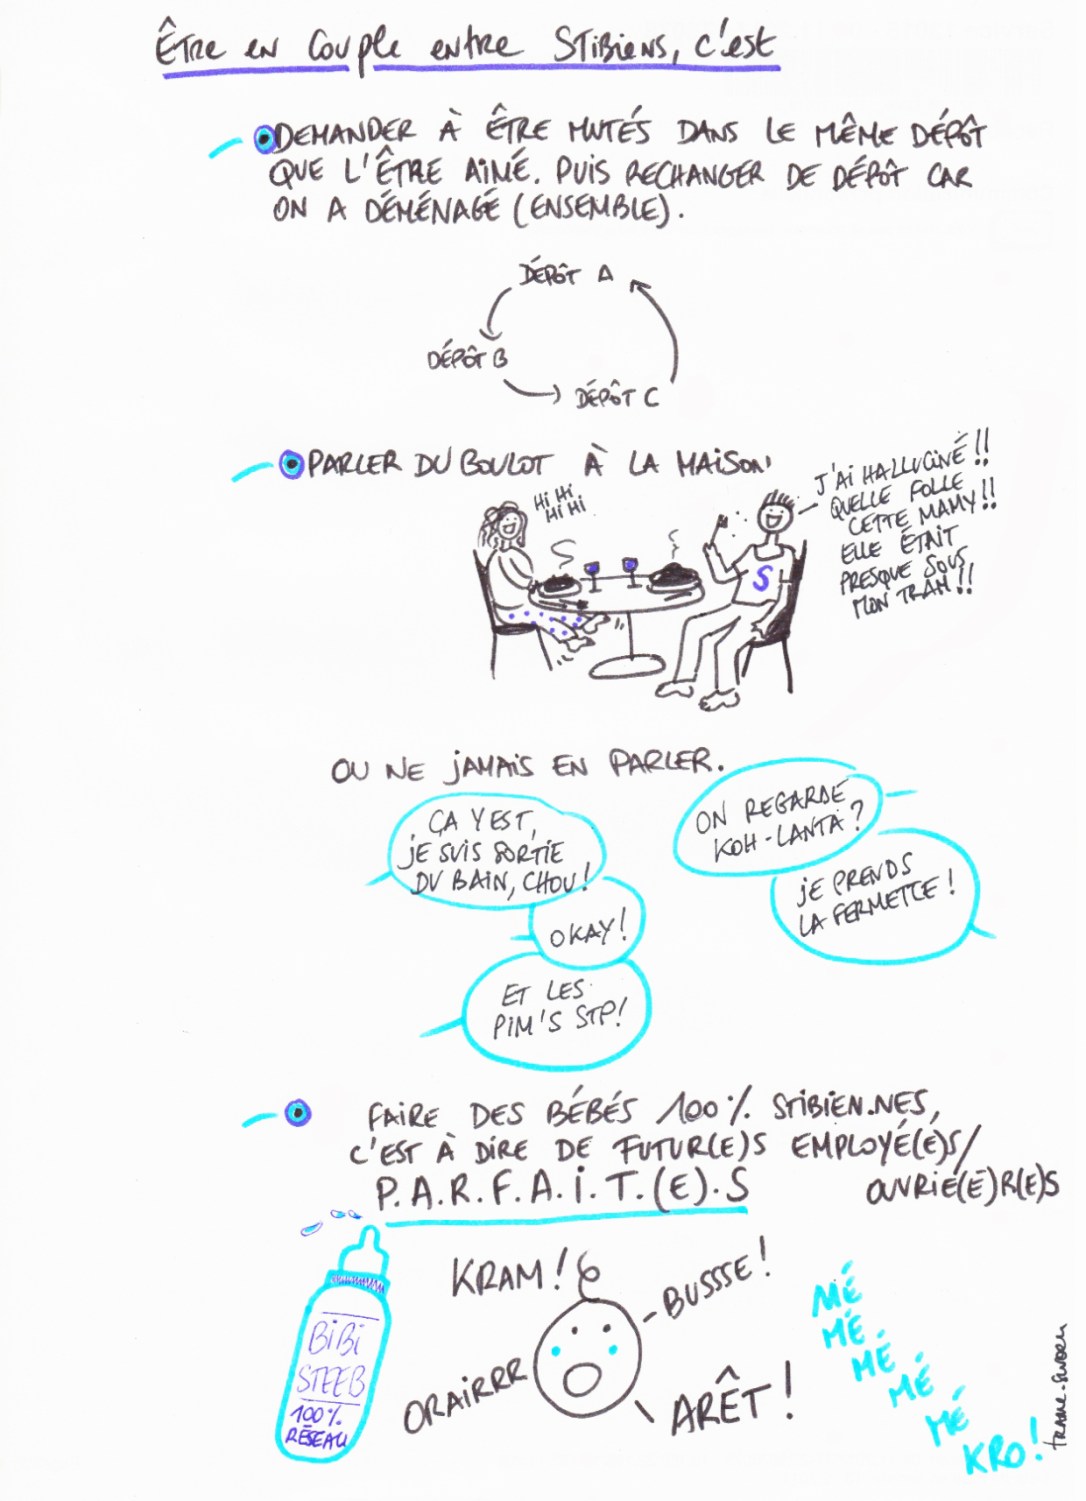 Être en Couple entre STIBiens, c'est
DEMANDER À ÊTRE MUTÉS DANS LE MÊME DÉPÔT
QUE L'ÊTRE AIMÉ. PUIS RECHANGER DE DÉPÔT CAR
ON A DÉMÉNAGÉ (ENSEMBLE).
DÉPÔT A
DÉPÔT B
DÉPÔT C
PARLER DU BOULOT À LA MAISON
Hi Hi
Hi Hi
J'AI HALLUCINÉ!!
QUELLE FOLLE
CETTE MAMY!!
ELLE ÉTAIT
PRESQUE SOUS
MON TRAM!!
S
OU NE JAMAIS EN PARLER.
ÇA Y EST,
JE SUIS SORTIE
DU BAIN, CHOU!
OKAY!
ET LES
PIM'S STP!
ON REGARDE
KOH-LANTA?
JE PRENDS
LA FERMETTE!
FAIRE DES BÉBÉS 100% STIBIEN.NES,
C'EST À DIRE DE FUTUR(E)S EMPLOYÉ(E)S/
OUVRIE(È)R(E)S
P.A.R.F.A.I.T.(E).S
BIBI
STEEB
100%
RÉSEAU
KRAM!
BUSSSE!
ORAIRRR
ARÊT!
MÉ
MÉ
MÉ
MÉ
MÉ
KRO!